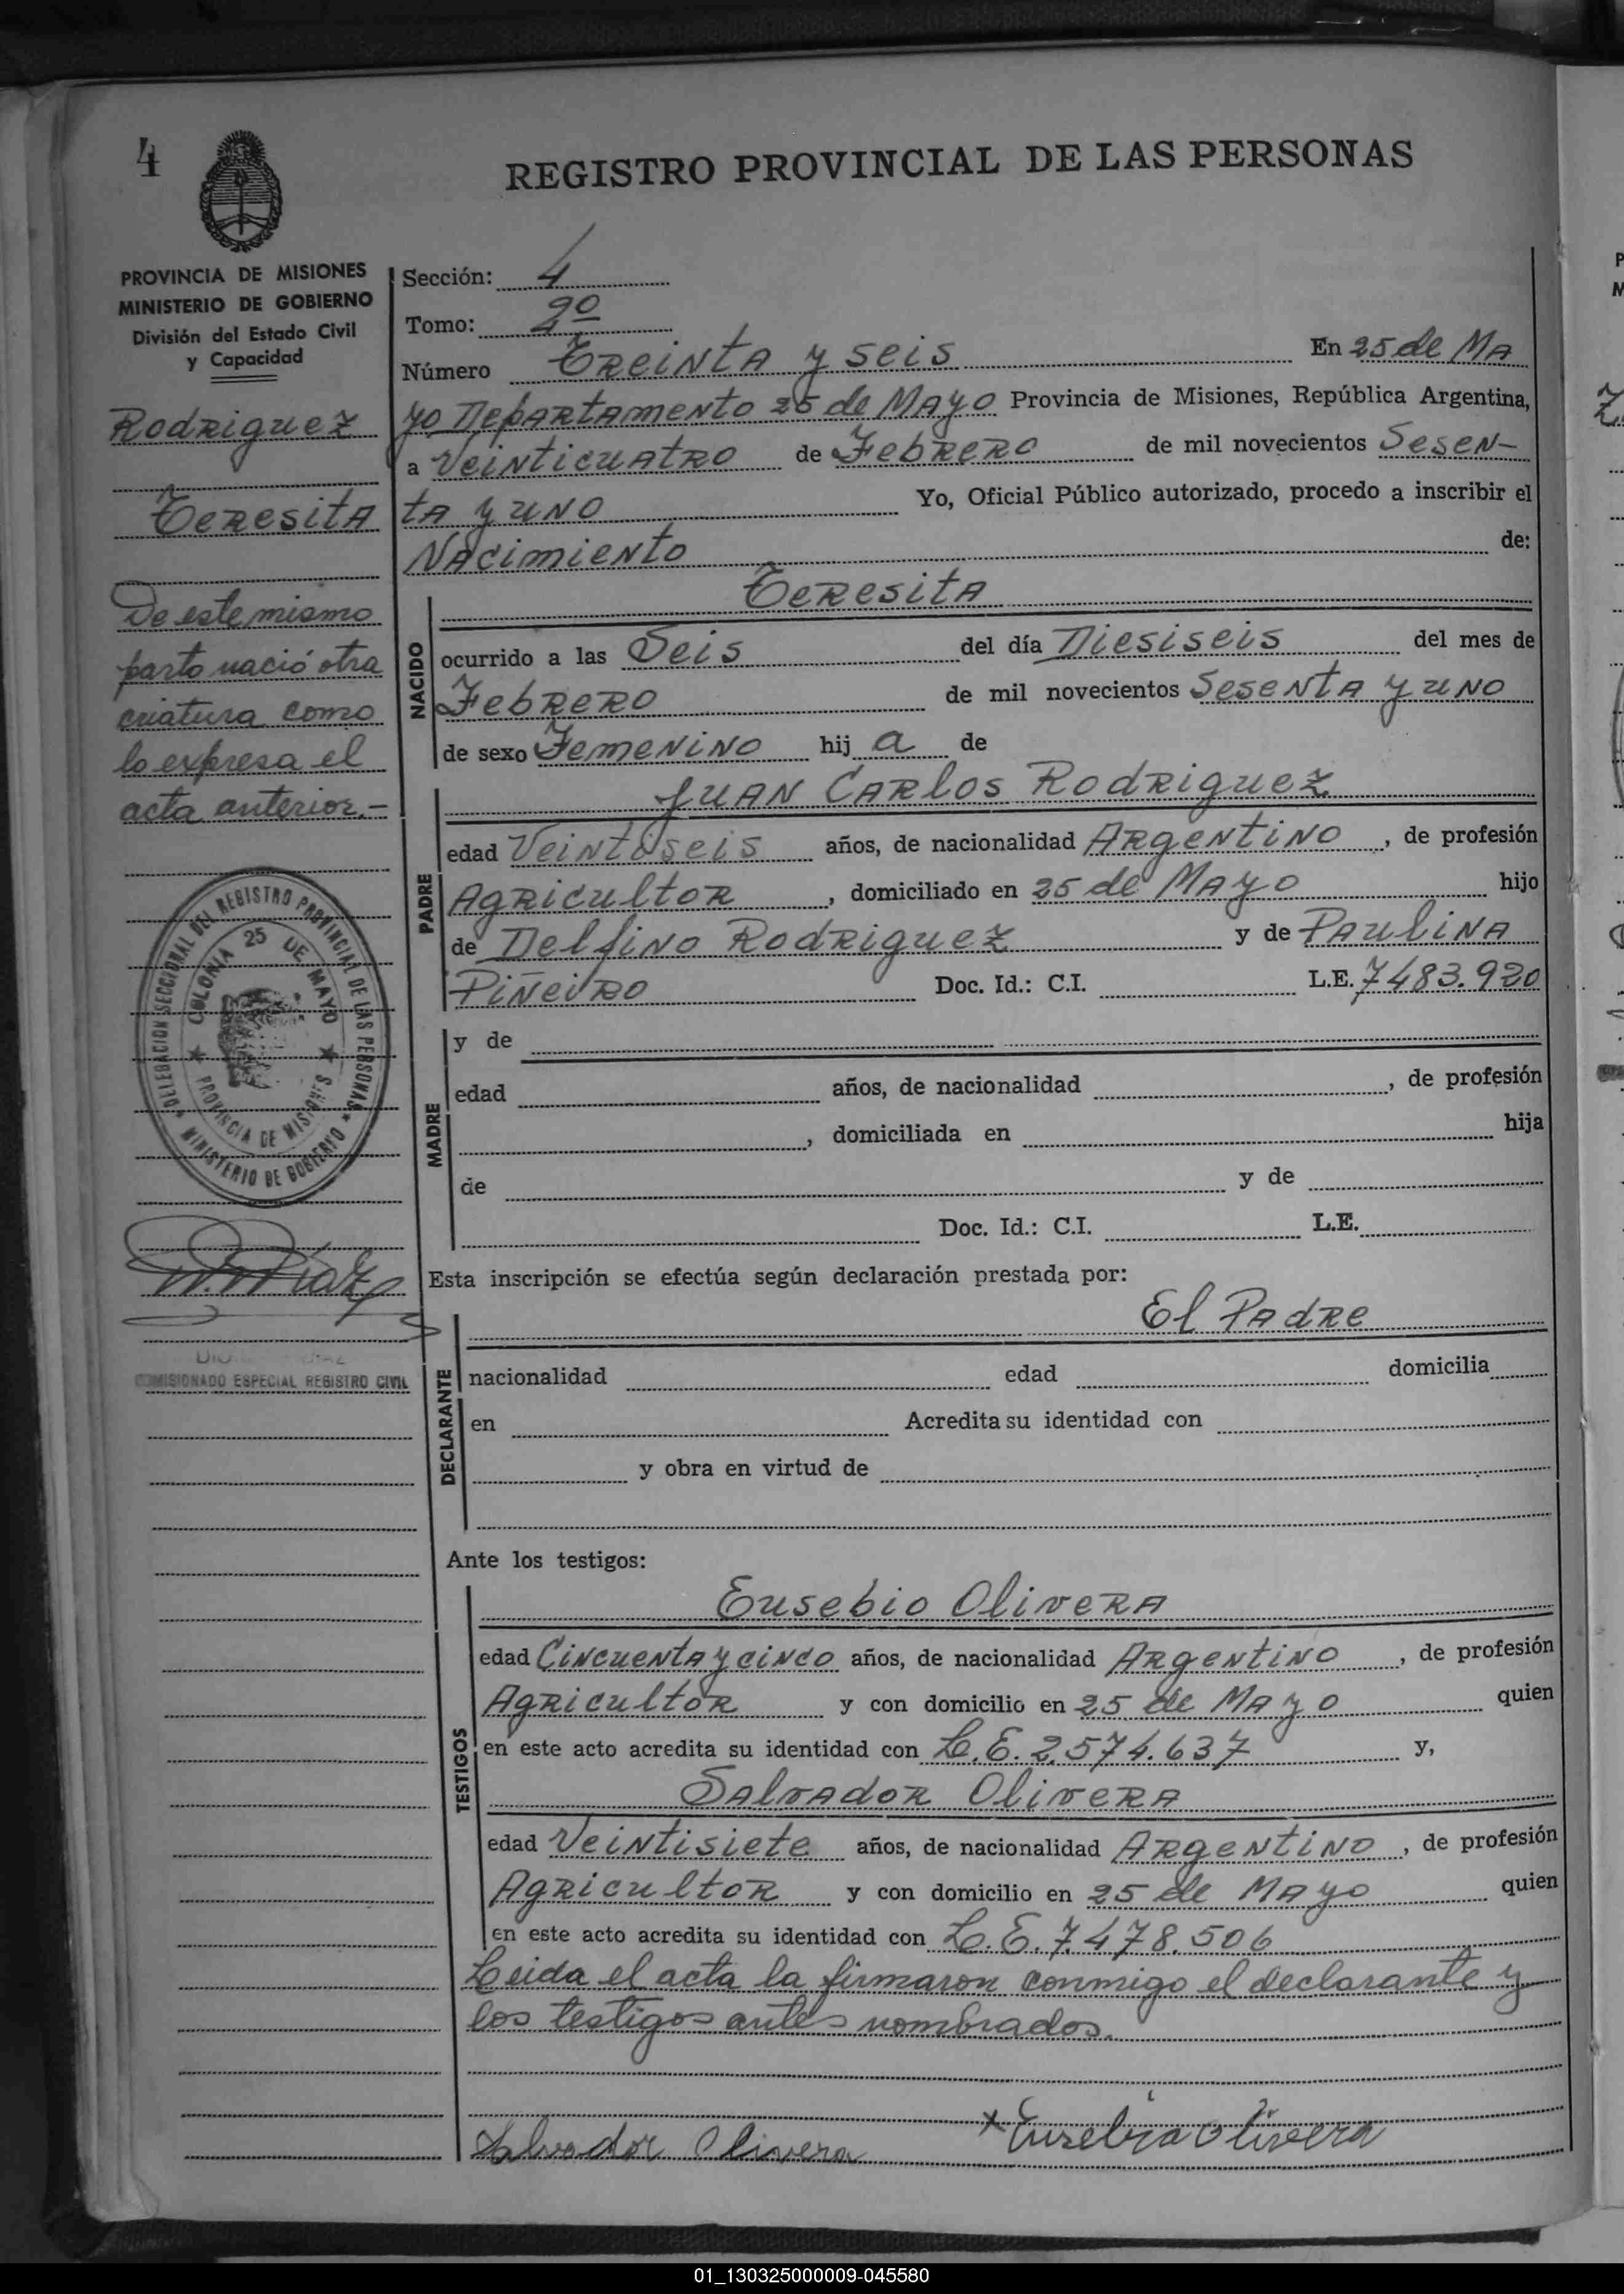 4
REGISTRO PROVINCIAL DE LAS PERSONAS
PROVINCIA DE MISIONES
MINISTERIO DE GOBIERNO
División del Estado Civil
y Capacidad
Rodriguez
Teresita
De este mismo
parto nació otra
criatura como
lo expresa el
acta anterior.-
DELEGACION SECCIONAL DEL REGISTRO PROVINCIAL DE LAS PERSONAS
MINISTERIO DE GOBIERNO
COLONIA 25 DE MAYO
PROVINCIA DE MISIONES
COMISIONADO ESPECIAL REGISTRO CIVIL
Sección: 4
Tomo: 2º
Número Treinta y seis En 25 de Ma
yo Departamento 25 de Mayo Provincia de Misiones, República Argentina,
a Veinticuatro de Febrero de mil novecientos Sesen-
ta y uno Yo, Oficial Público autorizado, procedo a inscribir el
Nacimiento de:
NACIDO
Teresita
ocurrido a las Seis del día Diesiseis del mes de
Febrero de mil novecientos Sesenta y uno
de sexo Femenino hij a de
PADRE
Juan Carlos Rodriguez
edad Veintiseis años, de nacionalidad Argentino, de profesión
Agricultor, domiciliado en 25 de Mayo hijo
de Delfino Rodriguez y de Paulina
Piñeiro Doc. Id.: C.I. L.E. 7483.920
MADRE
y de
edad años, de nacionalidad , de profesión
, domiciliada en hija
de y de
Doc. Id.: C.I. L.E.
Esta inscripción se efectúa según declaración prestada por:
DECLARANTE
El Padre
nacionalidad edad domicilia
en Acredita su identidad con
y obra en virtud de
Ante los testigos:
TESTIGOS
Eusebio Olivera
edad Cincuenta y cinco años, de nacionalidad Argentino, de profesión
Agricultor y con domicilio en 25 de Mayo quien
en este acto acredita su identidad con L.E. 2.574.637 y,
Salvador Olivera
edad Veintisiete años, de nacionalidad Argentino, de profesión
Agricultor y con domicilio en 25 de Mayo quien
en este acto acredita su identidad con L.E. 7.478.506
Leida el acta la firmaron conmigo el declarante y
los testigos antes nombrados.
Salvador Olivera x Eusebio Olivera
01_130325000009-045580